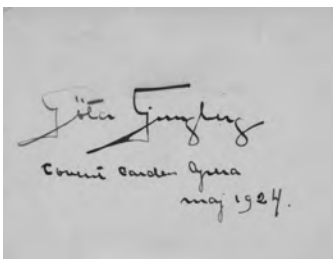 Göta Ljungberg
Covent Garden Opera
maj 1924.